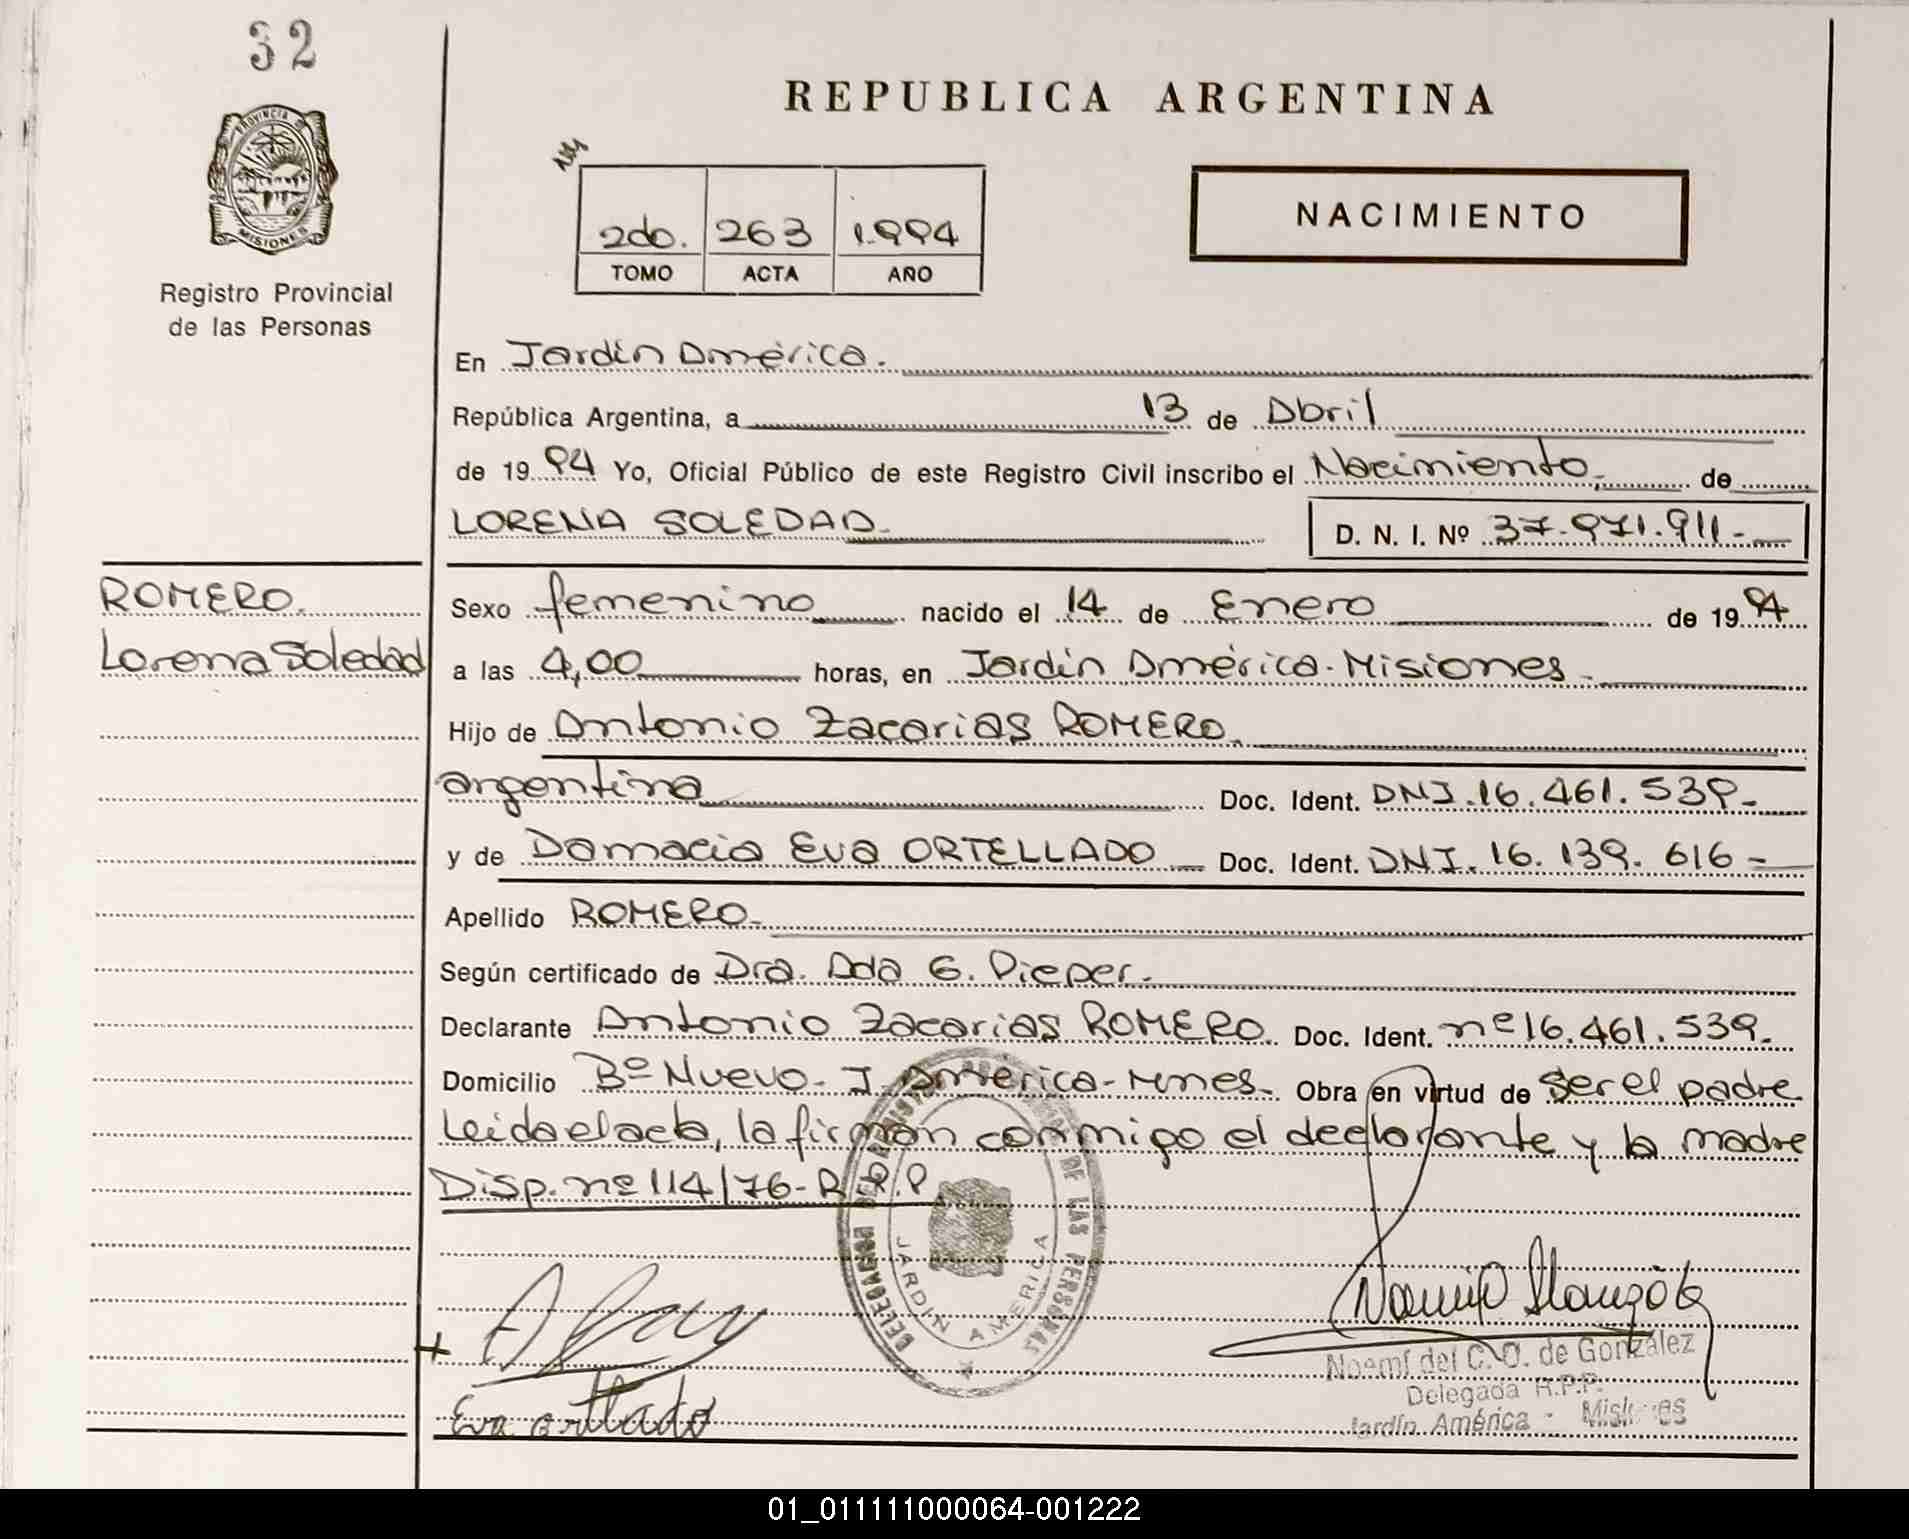 32
PROVINCIA DE
MISIONES
Registro Provincial
de las Personas
REPUBLICA ARGENTINA
2do. 263 1.994
TOMO ACTA AÑO
NACIMIENTO
En Jardín América.
República Argentina, a 13 de Abril
de 19 94 Yo, Oficial Público de este Registro Civil inscribo el Nacimiento, de
LORENA SOLEDAD.
D. N. I. Nº 37.971.911-
ROMERO.
Lorena Soledad
Sexo femenino nacido el 14 de Enero de 19 94
a las 4,00 horas, en Jardín América-Misiones
Hijo de Antonio Zacarias ROMERO.
argentina Doc. Ident. DNI.16.461.539-
y de Damacia Eva ORTELLADO Doc. Ident. DNI. 16.139.616-
Apellido ROMERO-
Según certificado de Dra. Ada G. Pieper.
Declarante Antonio Zacarias ROMERO. Doc. Ident. nº16.461.539.
Domicilio Bº Nuevo- J. América-Mnes- Obra en virtud de ser el padre
Leida el acta, la firman conmigo el declarante y la madre
Disp. nº 114/76-R.P.P.
DELEGACION DEL REGISTRO PROVINCIAL DE LAS PERSONAS
JARDIN AMERICA
Eva ortllado
Noemí del C. O. de González
Delegada R.P.P.
Jardín América - Misiones
01_011111000064-001222